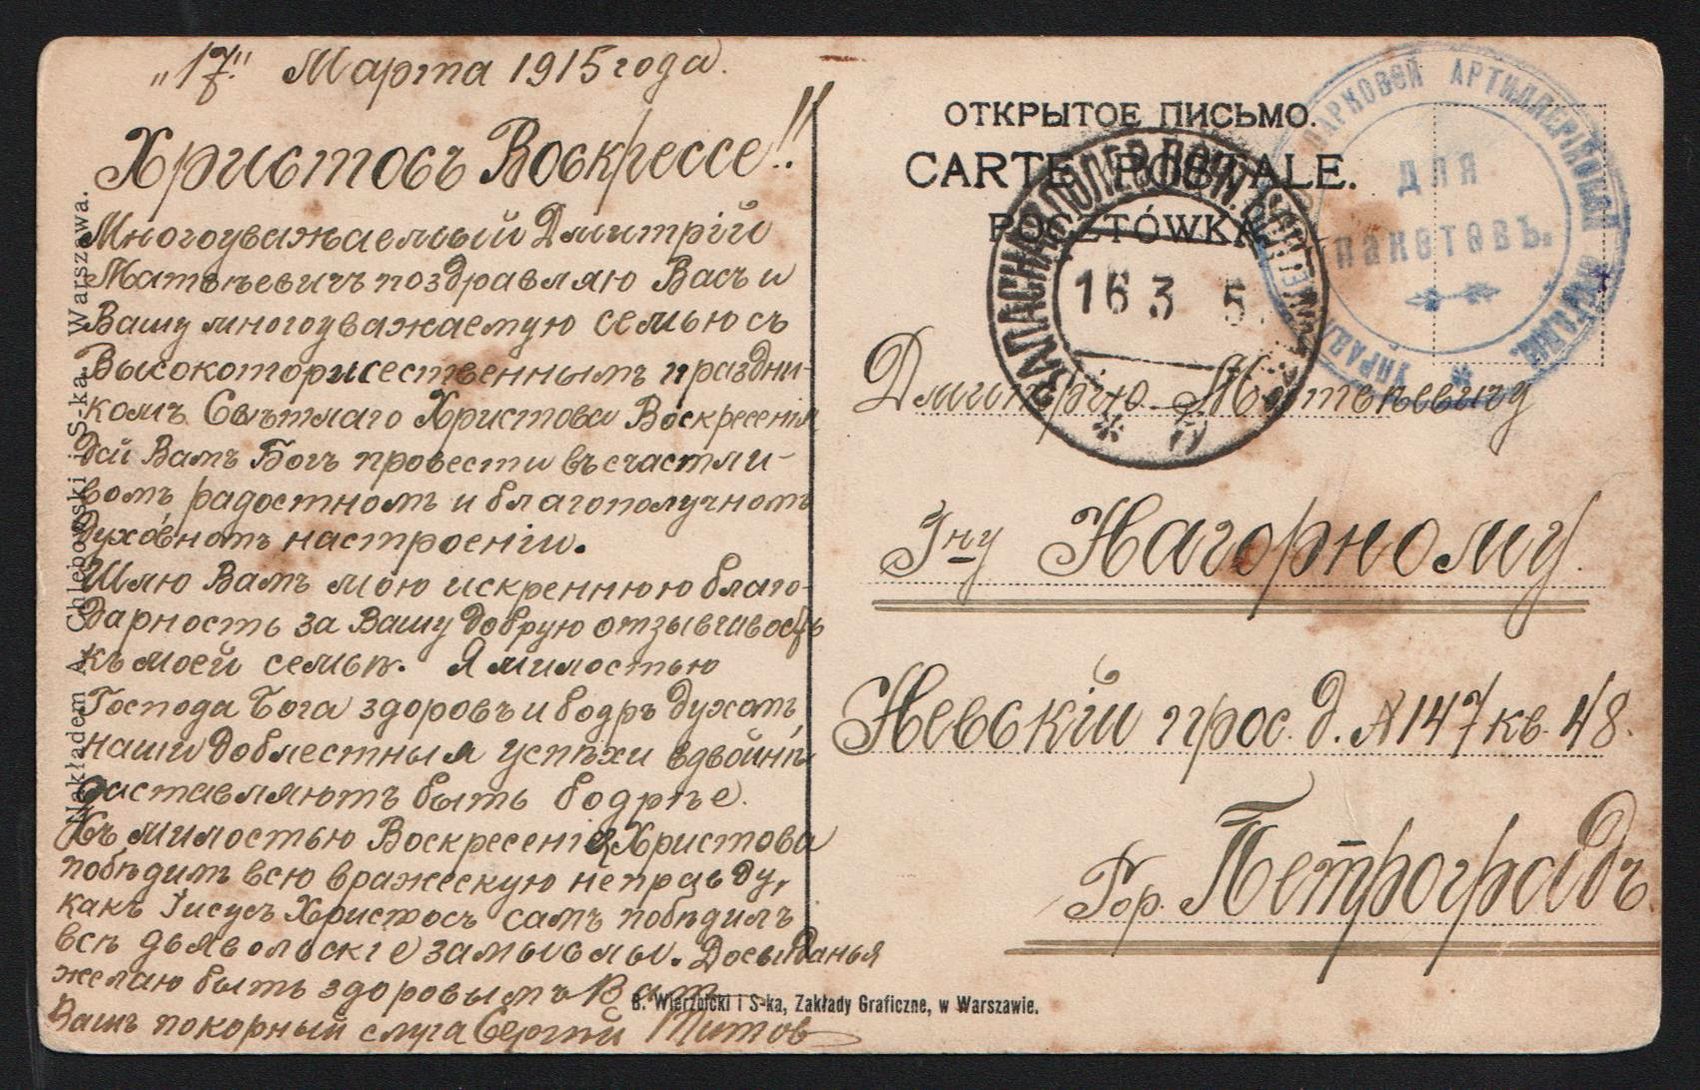 „17“ Марта 1915 года.
Христосъ Воскрессе!!
Многоуважаемый Дмитрій
Матвѣевичъ поздравляю Васъ и
Вашу многоуважаемую семью съ
Высокоторжественнымъ праздни-
комъ Свѣтлаго Христова Воскресенія
дай Вамъ Богъ провести въ счастли-
вомъ радостномъ и благополучномъ
духовномъ настроеніи.
Шлю Вамъ мою искреннюю благо-
дарность за Вашу добрую отзывчивость
къ моей семьѣ. Я милостью
Господа Бога здоровъ и бодръ духомъ,
наши доблестныя успѣхи вдвойнѣ
заставляютъ быть бодрѣе.
Милостью Воскресенія Христова
побѣдимъ всю вражескую неправду,
какъ Іисусъ Христосъ самъ побѣдилъ
всѣ дьявольскіе замыслы. Досвиданья
желаю быть здоровымъ Вамъ
Вашъ покорный слуга Сергѣй Титов
Nakładem A. Chlebowski i S-ka. Warszawa.
ОТКРЫТОЕ ПИСЬМО.
CARTE POSTALE.
POCZTÓWKA
ЗАПАСНАЯ ПОЛЕВ. ПОЧТ.
16 3 5
ПАРКОВОЙ АРТИЛЛЕРІЙСКОЙ
ДЛЯ
ПАКЕТОВЪ.
Дмитрію Матвѣевичу
Гну Нагорному.
Невскій прос. д. № 147 кв. 48.
Гор. Петроградъ
B. Wierzbicki i S-ka, Zakłady Graficzne, w Warszawie.